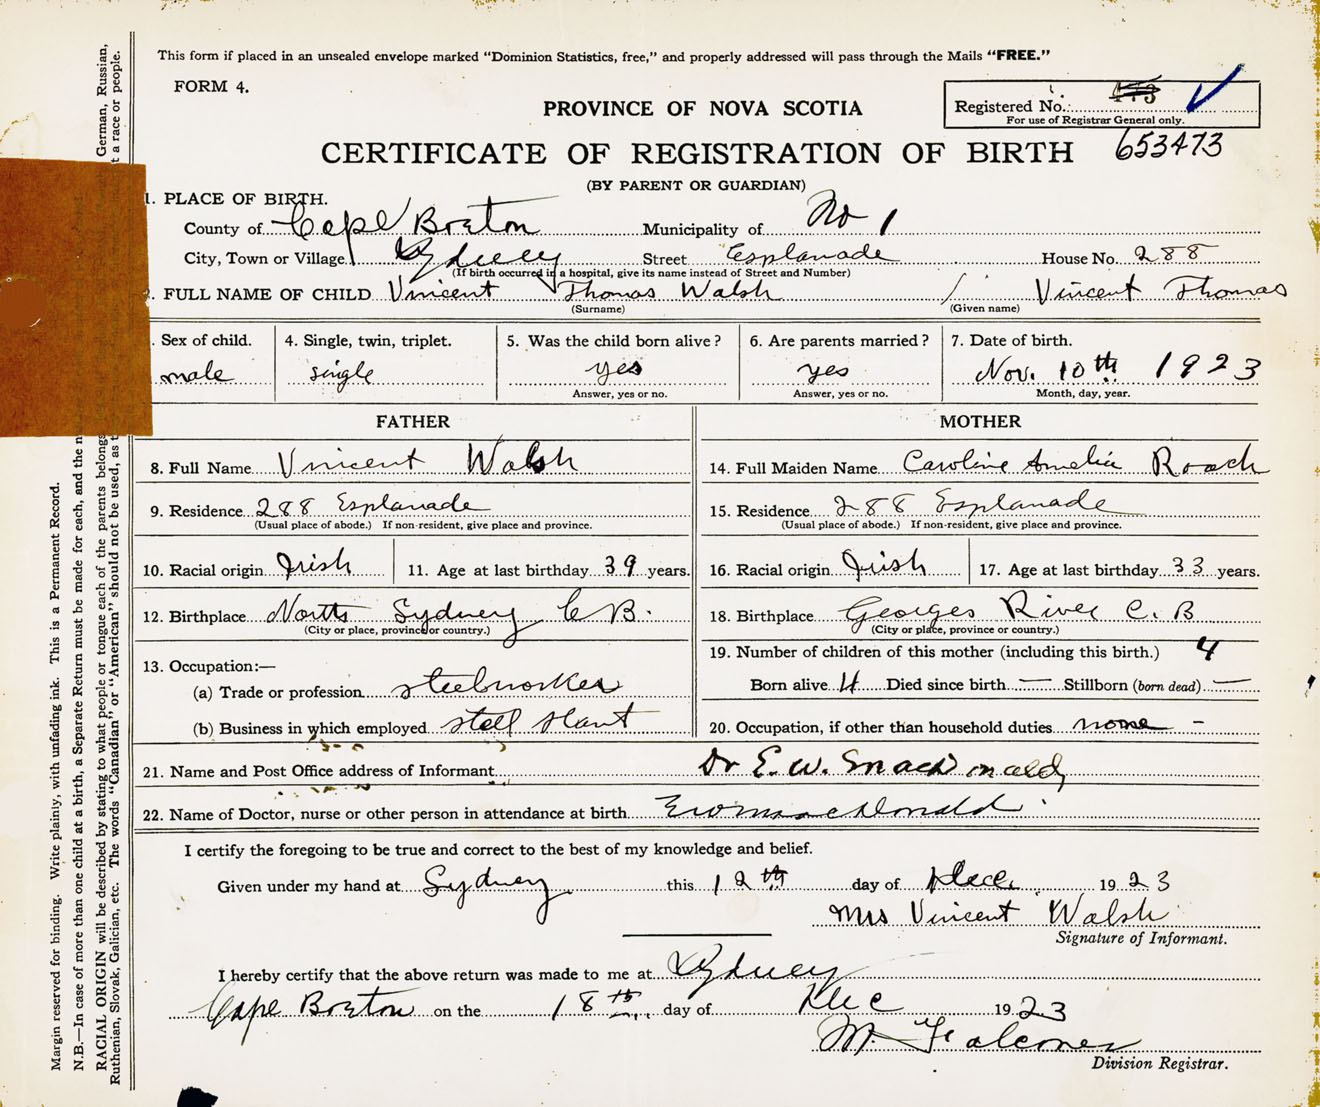 This form if placed in an unsealed envelope marked "Dominion Statistics, free," and properly addressed will pass through the Mails "FREE."
FORM 4.
PROVINCE OF NOVA SCOTIA
Registered No. 473
For use of Registrar General only.
653473
CERTIFICATE OF REGISTRATION OF BIRTH
(BY PARENT OR GUARDIAN)
1. PLACE OF BIRTH.
County of Cape Breton Municipality of No 1
City, Town or Village Sydney Street Esplanade House No. 288
(If birth occurred in a hospital, give its name instead of Street and Number)
2. FULL NAME OF CHILD Vincent Thomas Walsh / Vincent Thomas
(Surname) (Given name)
. Sex of child. 4. Single, twin, triplet. 5. Was the child born alive? 6. Are parents married? 7. Date of birth.
male single yes yes Nov. 10th 1923
Answer, yes or no. Answer, yes or no. Month, day, year.
FATHER MOTHER
8. Full Name Vincent Walsh 14. Full Maiden Name Caroline Amelia Roach
9. Residence 288 Esplanade 15. Residence 288 Esplanade
(Usual place of abode.) If non-resident, give place and province. (Usual place of abode.) If non-resident, give place and province.
10. Racial origin Irish 11. Age at last birthday 39 years. 16. Racial origin Irish 17. Age at last birthday 33 years.
12. Birthplace North Sydney C B. 18. Birthplace Georges River C. B
(City or place, province or country.) (City or place, province or country.)
13. Occupation:— 19. Number of children of this mother (including this birth.) 4
(a) Trade or profession steelworker Born alive 4 Died since birth — Stillborn (born dead) —
(b) Business in which employed steel plant 20. Occupation, if other than household duties none -
21. Name and Post Office address of Informant Dr E. W. MacDonald,
22. Name of Doctor, nurse or other person in attendance at birth EW MacDonald
I certify the foregoing to be true and correct to the best of my knowledge and belief.
Given under my hand at Sydney this 12th day of Dec. 1923
Mrs Vincent Walsh
Signature of Informant.
I hereby certify that the above return was made to me at Sydney
Cape Breton on the 18th day of Dec 1923
M. Falconer
Division Registrar.
Margin reserved for binding. Write plainly, with unfading ink. This is a Permanent Record.
N.B.—In case of more than one child at a birth, a Separate Return must be made for each, and the n
RACIAL ORIGIN will be described by stating to what people or tongue each of the parents belongs German, Russian,
Ruthenian, Slovak, Galician, etc. The words "Canadian" or "American" should not be used, as t t a race or people.